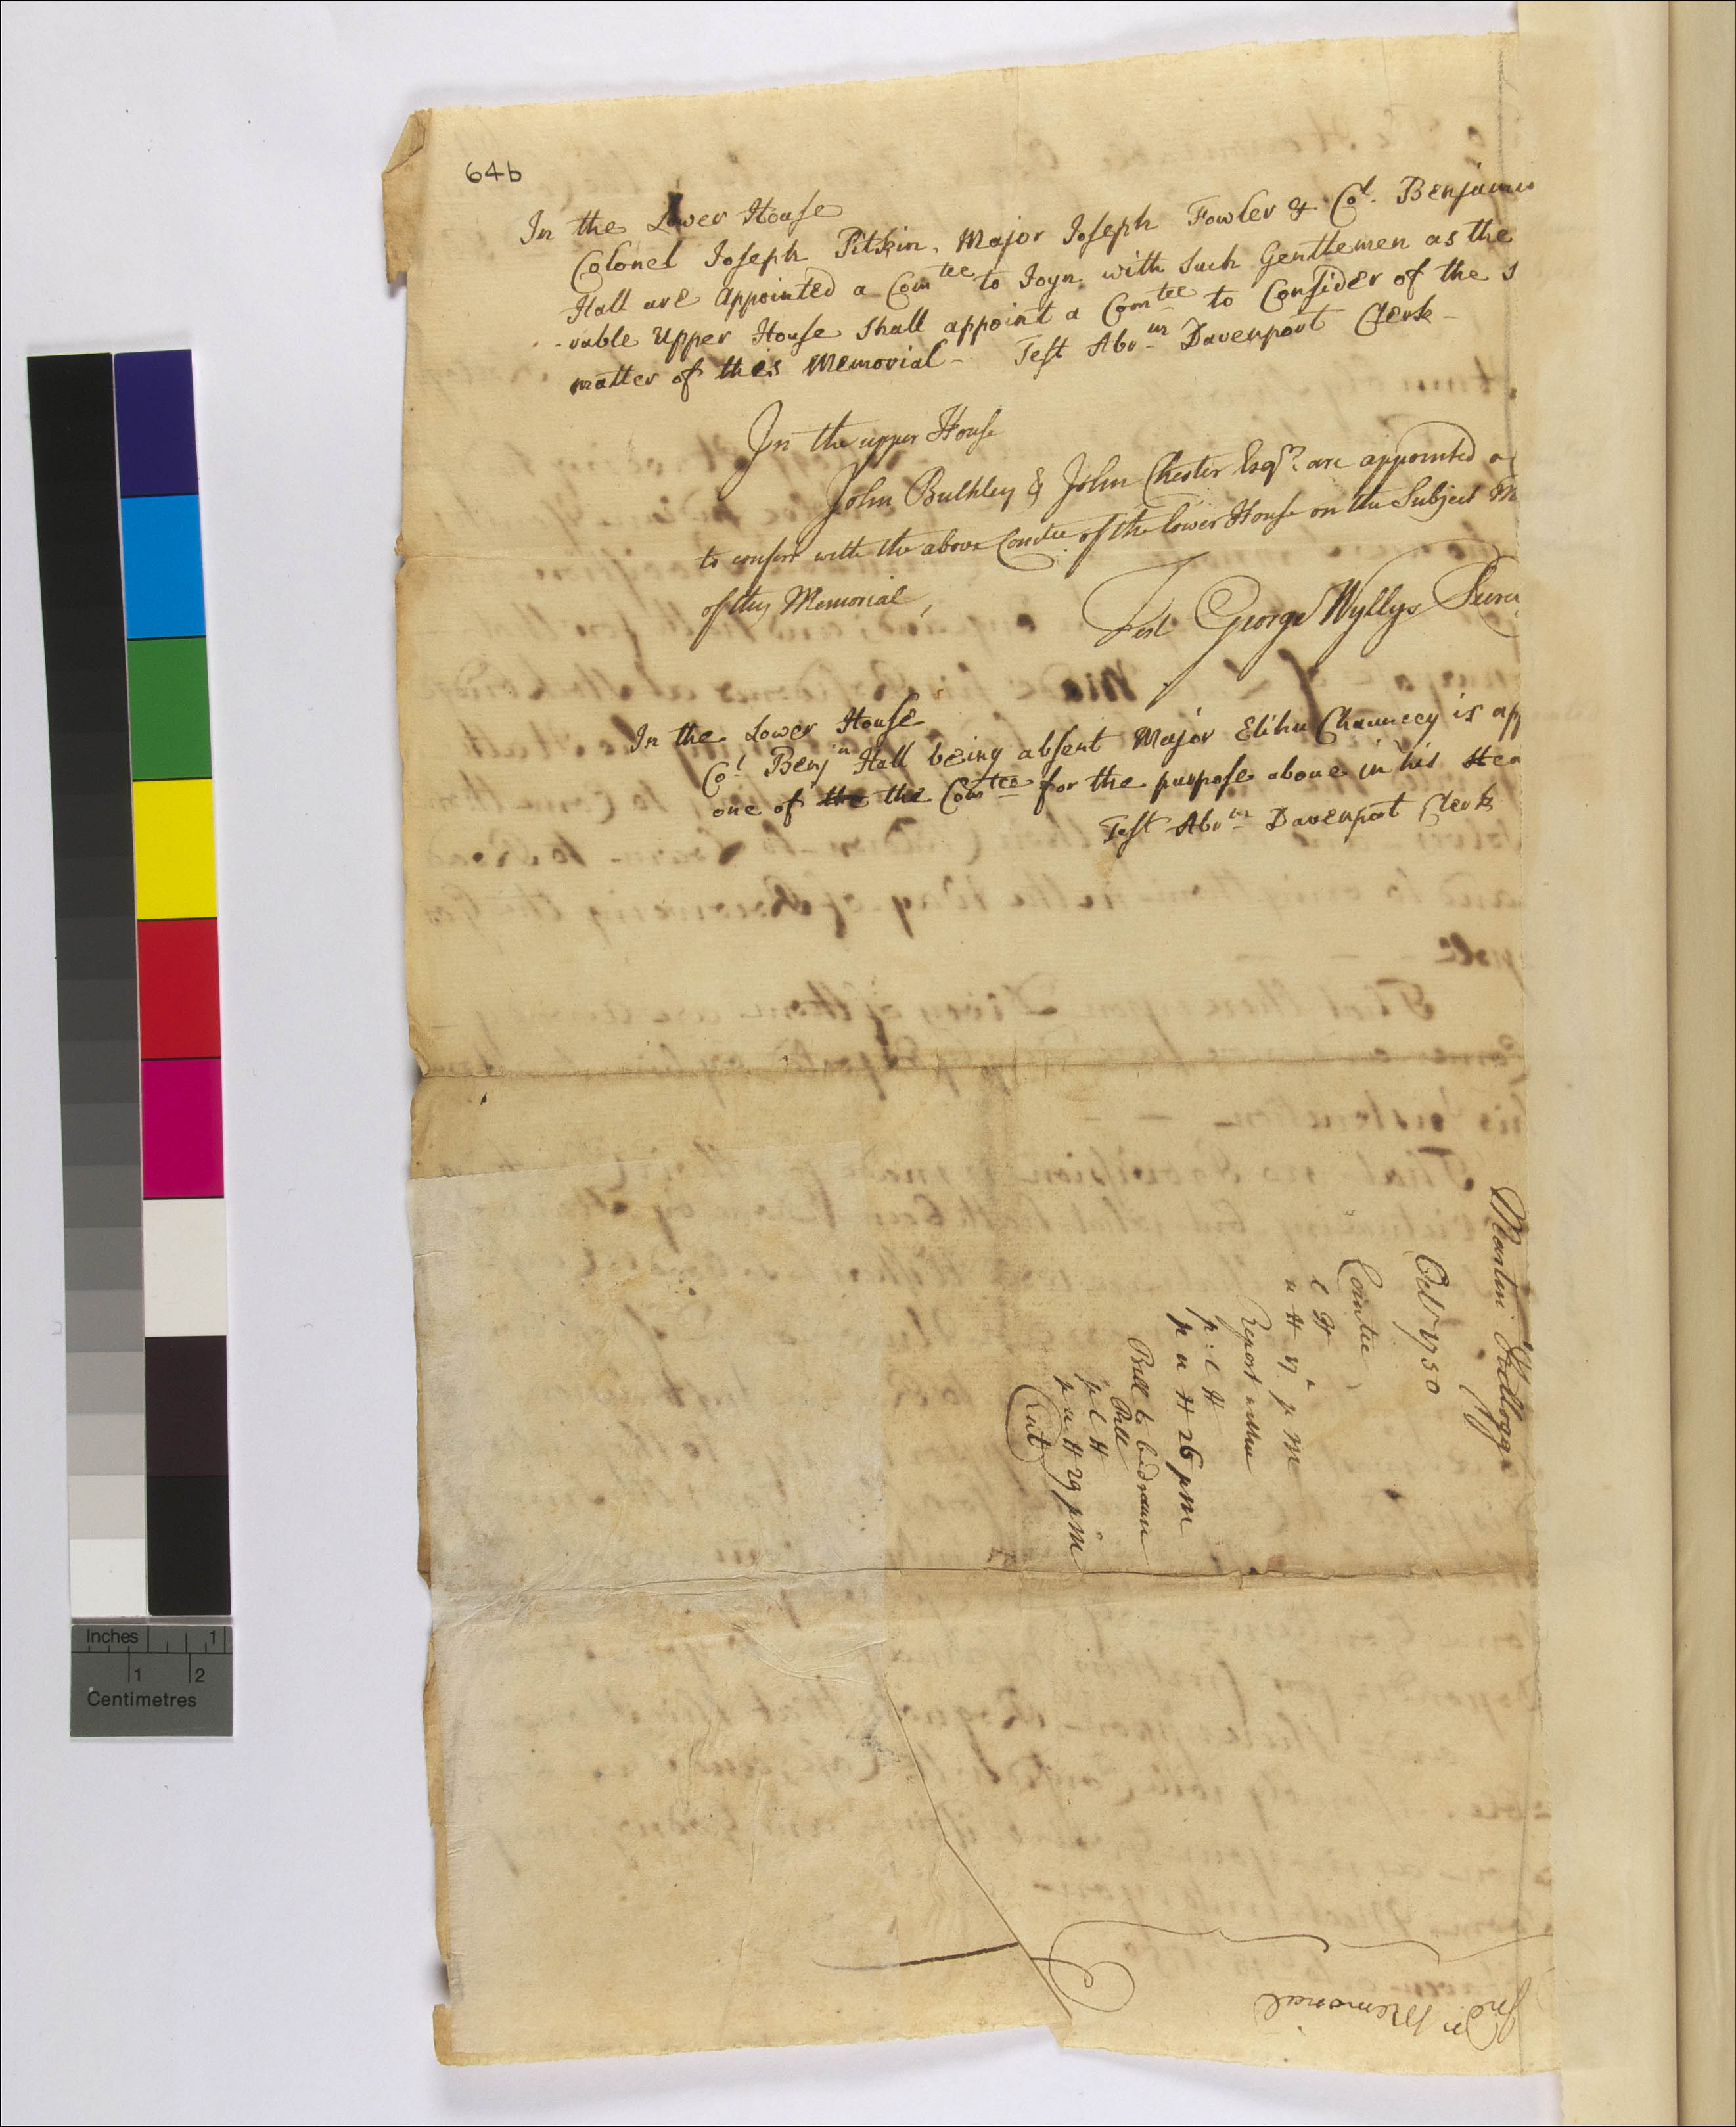 64b
In the Lower House
Colonel Joseph Pitkin, Major Joseph Fowler & Col. Benjamin
Hall are Appointed a Comtee to Joyn with Such Gentlemen as the
vable Upper House shall appoint a Comtee to Consider of the s
matter of this Memorial - Test Abrm Davenport Clerk -
In the upper House
John Bulkley & John Chester Esqrs. are appointed a
to confer with the above Comtee of the lower House on the Subject M
of this Memorial,
Test George Wyllys Secre
In the Lower House
Col Benjn Hall being absent Major Elihu Chauncey is ap
one of the the Comtee for the purpose above in his Stea
Test Abrm Davenport Clerk
Martin Kellogg
Octr 1750
Comtee
l H
u H 17 p M
Report within
p. l H
p u H 26 p m
Bill to be drawn
Bill
p l H
p u H 29 p m
Ent
Indn Memorial
Inches 1
1 2
Centimetres